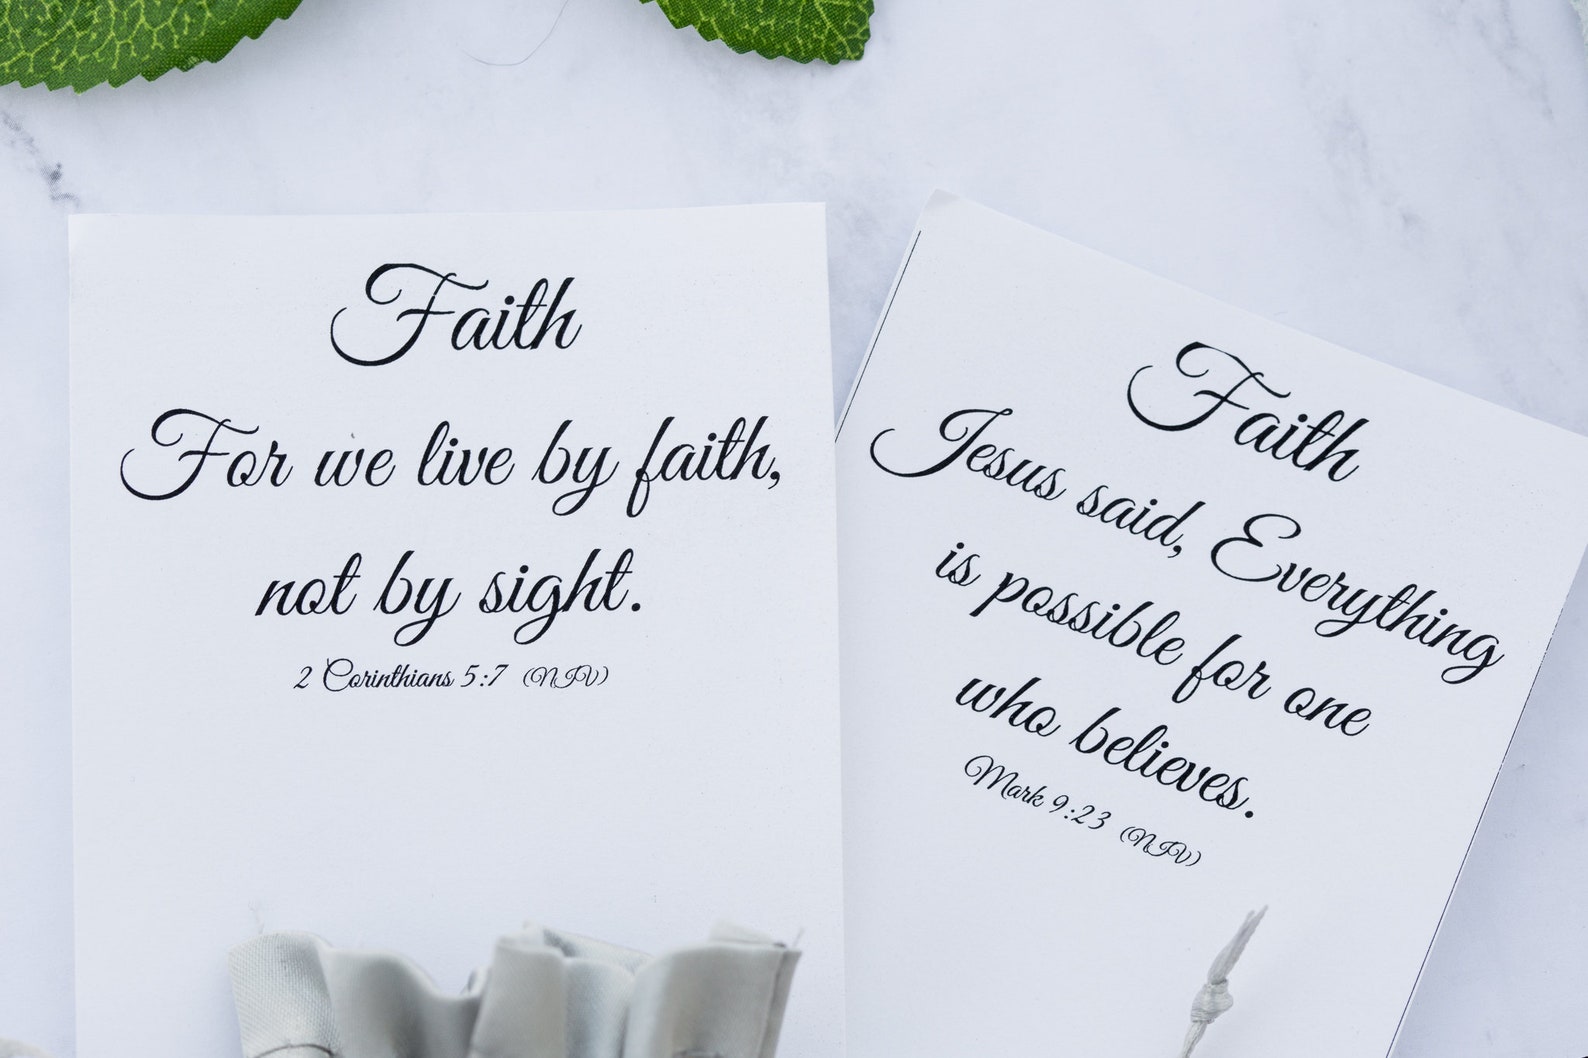 Faith
For we live by faith,
not by sight.
2 Corinthians 5:7 (NIV)
Faith
Jesus said, Everything
is possible for one
who believes.
Mark 9:23 (NIV)